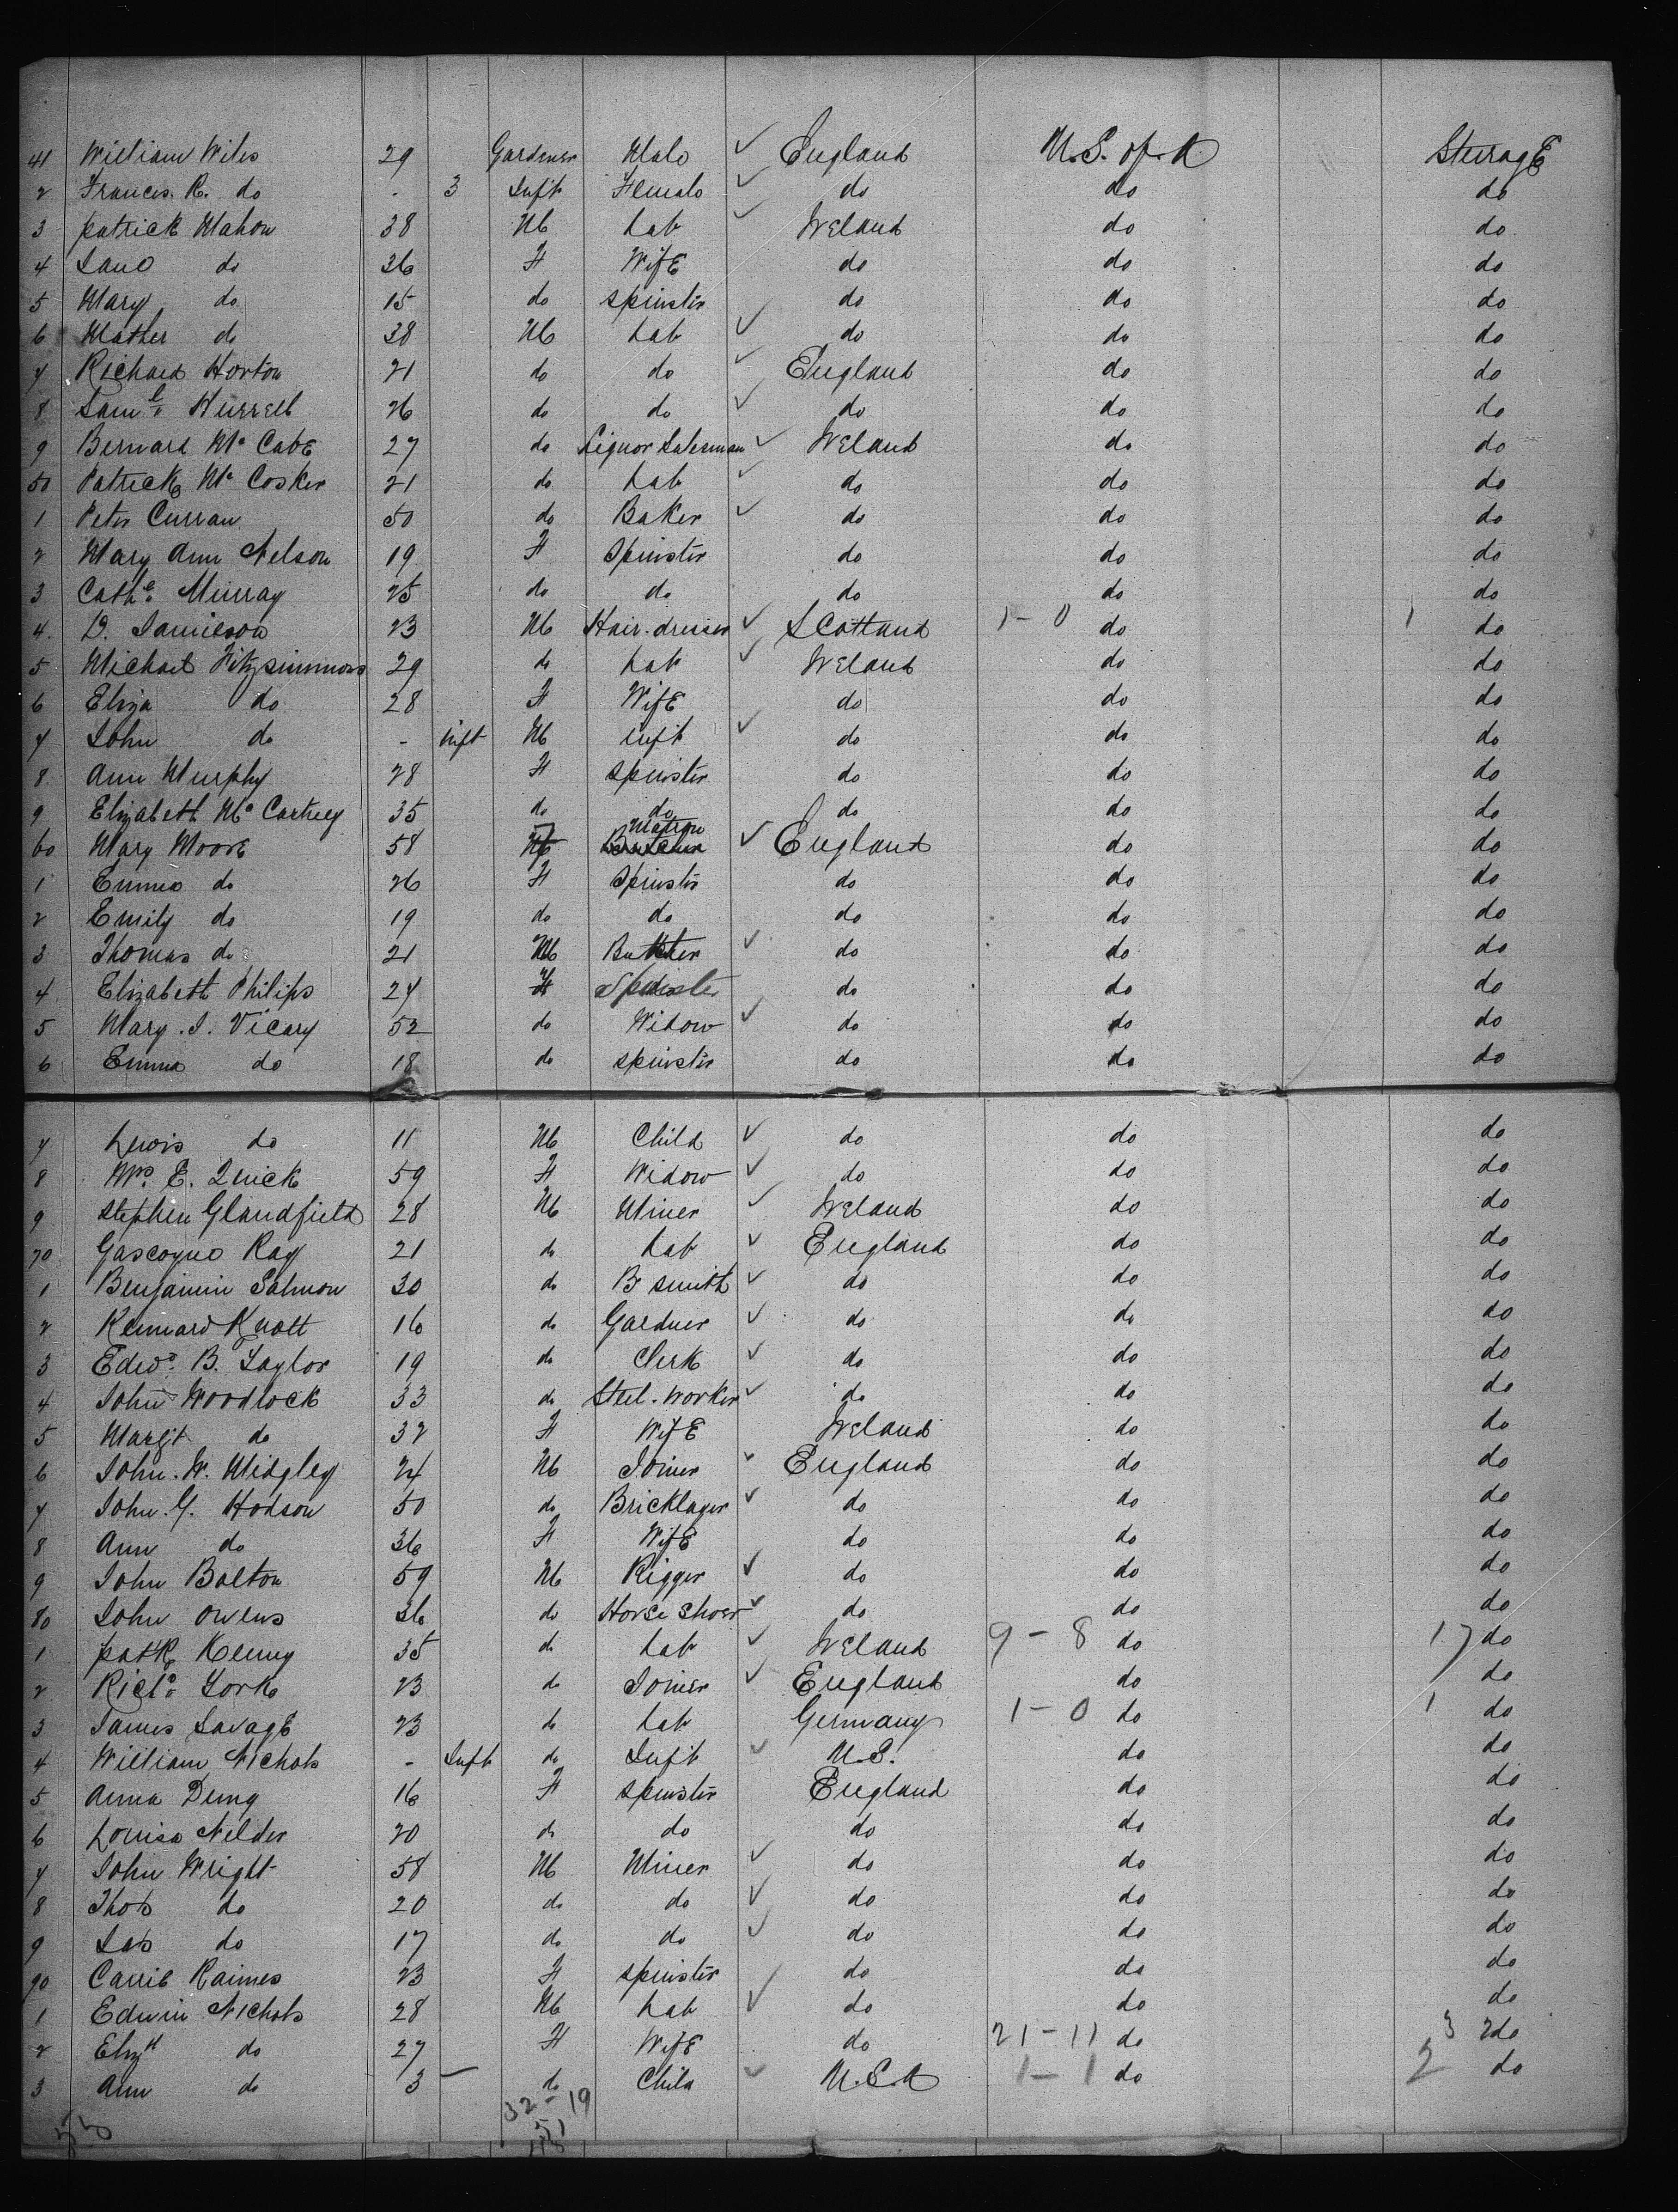 41 William Wiles 29 Gardener Male ✓ England U.S. of A Steerage
2 Frances. R. do - 3 Inft Female ✓ do do do
3 patrick Mahon 38 M lab ✓ Ireland do do
4 Jane do 36 F Wife do do do
5 Mary do 15 do spinster do do do
6 Mather do 38 M Lab ✓ do do do
7 Richard Horton 21 do do ✓ England do do
8 Saml. Hurrell 26 do do ✓ do do do
9 Bernard Mc Cabe 27 do Liquor Salesman ✓ Ireland do do
50 Patrick Mc Cosker 21 do Lab ✓ do do do
1 Peter Curran 50 do Baker ✓ do do do
2 Mary Ann Nelson 19 F Spinster do do do
3 Cathe. Murray 25 do do do do do
4. D. Jamieson 23 M Hair-dresser ✓ Scotland 1-0 do 1 do
5 Michael Fitzsimmons 29 do Lab ✓ Ireland do do
6 Eliza do 28 F Wife do do do
7 John do - inft M inft ✓ do do do
8 Ann Murphy 28 F spinster do do do
9 Elizabeth Mc Cartney 35 do do do do do
60 Mary Moore 58 F Matron ✓ England do do
1 Emma do 26 F Spinster do do do
2 Emily do 19 do do do do do
3 Thomas do 21 M Butcher ✓ do do do
4 Elizabeth Philips 24 F Spinster do do do
5 Mary. J. Vicary 52 do Widow ✓ do do do
6 Emma do 18 do spinster do do do
7 Lewis do 11 M Child ✓ do do do
8 Mrs. E. Quick 59 F Widow ✓ do do do
9 Stephen Glandfield 28 M Miner ✓ Ireland do do
70 Gascoyne Ray 21 do Lab ✓ England do do
1 Benjamin Salmon 30 do B smith ✓ do do do
2 Kennard Knott 16 do Gardner ✓ do do do
3 Edwd. B. Taylor 19 do Clerk ✓ do do do
4 John Woodlock 33 do Steel-worker ✓ do do do
5 Margt do 32 F Wife Ireland do do
6 John. W. Midgley 24 M Joiner ✓ England do do
7 John. G. Hodson 50 do Bricklayer ✓ do do do
8 Ann do 36 F Wife do do do
9 John Bolton 59 M Rigger ✓ do do do
80 John Owens 36 do Horse Shoer ✓ do do do
1 patk Kenny 35 do Lab ✓ Ireland 9-8 do 17 do
2 Richd. York 23 do Joiner ✓ England do do
3 James Savage 23 do Lab Germany 1-0 do 1 do
4 William Nichols - Inft do Inft ✓ U.S. do do
5 Anna Deng 16 F spinster England do do
6 Louisa Nelder 20 do do do do do
7 John Wright 58 M Miner ✓ do do do
8 Thos do 20 do do ✓ do do do
9 Jas do 17 do do ✓ do do do
90 Carrie Raines 23 F spinster do do do
1 Edwin Nichols 28 M Lab ✓ do do do
2 Elizth do 27 F Wife do 21-11 do 32 do
3 Ann do 3 - do Child ✓ U.S.A 1-1 do 2 do
53 32-19
51